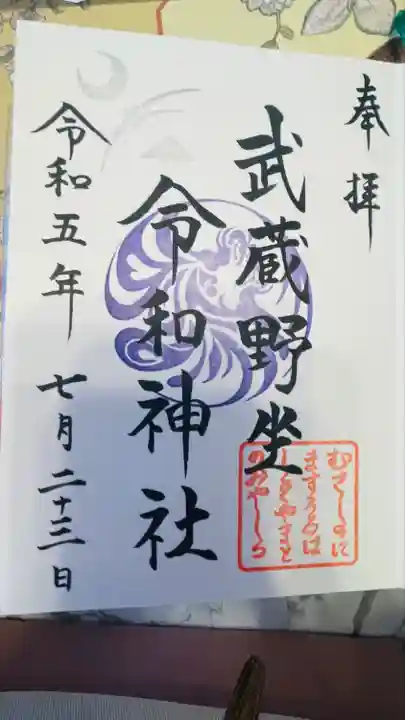 奉拝
武蔵野坐
令和神社
令和五年
七月二十三日
むさしのに
ますうるは
しきやまと
のみやしろ